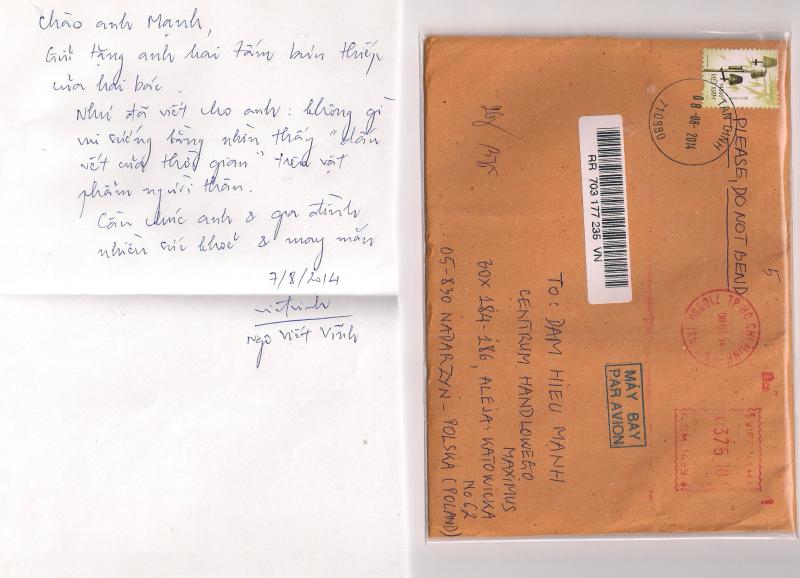 Chào anh Mạnh,
Gửi tặng anh hai tấm bưu thiếp
của hai bác.
Như đã viết cho anh: không gì
vui sướng bằng nhìn thấy "dấu
vết của thời gian" trên vật
phẩm người thân.
Cầu chúc anh & gia đình
nhiều sức khoẻ & may mắn
7/8/2014
Ngô Viết Vĩnh
VIỆT NAM
TÂN ĐỊNH
08-08-2014
710880
PLEASE, DO NOT BEND
5
RR 703 177 235 VN
TP HO CHI MINH
MÁY BAY
PAR AVION
375 10
To: DAM HIEU MANH
CENTRUM HANDLOWEGO
MAXIMUS
BOX 184-186, ALEJA: KATOWICKA
No 62
05-830 NADARZYN - POLSKA (POLAND)